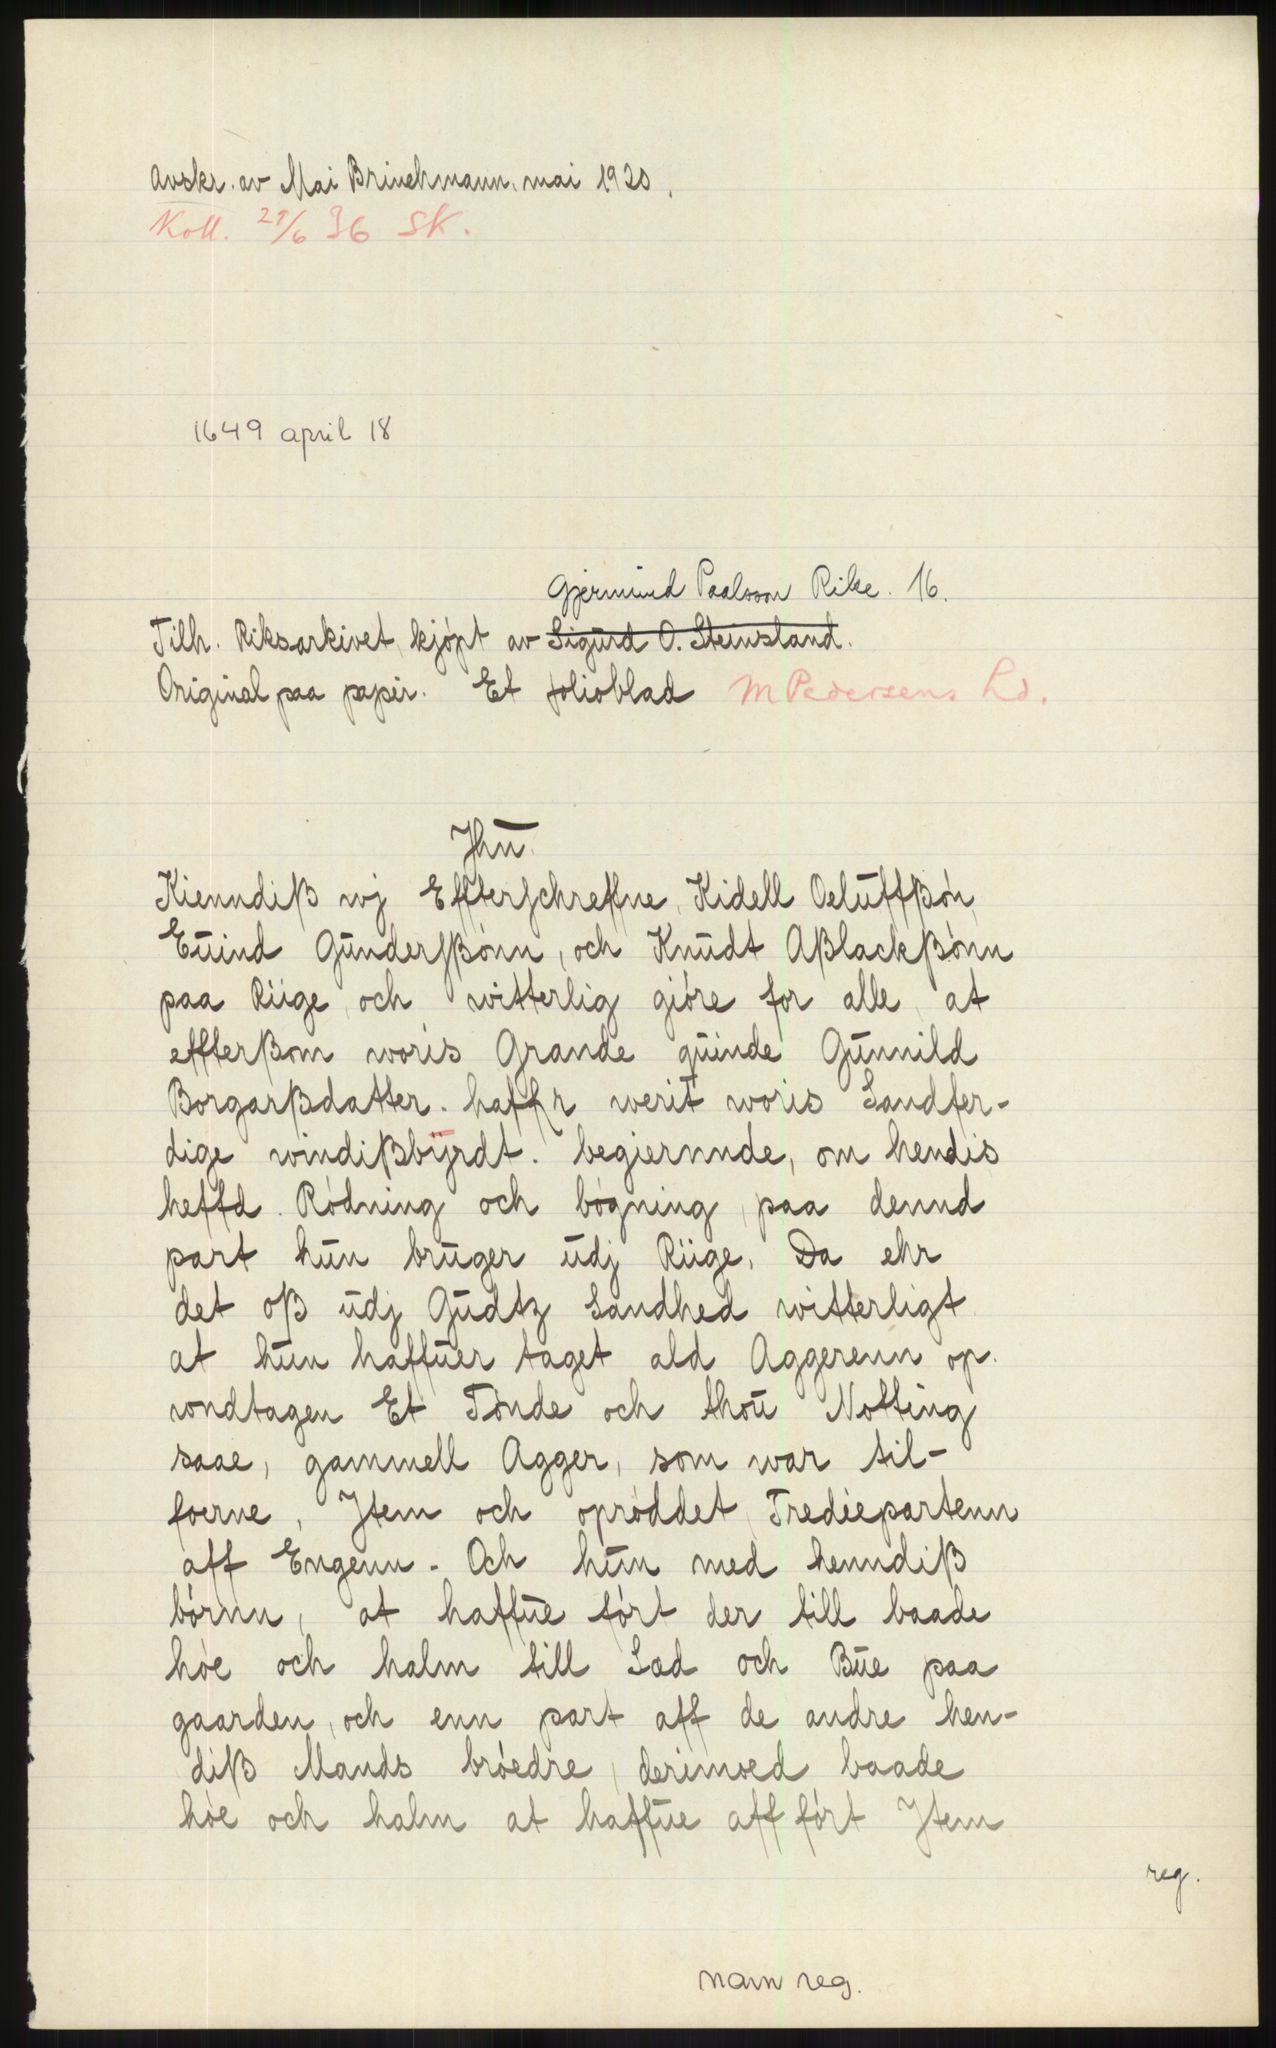 Avskr. av Mai Brinchmann, mai 1920.
Koll. 29/6 36 SK.
1649 april 18
Gjermund Paalsson Rike. 16.
Tilh. Riksarkivet, kjöpt av Sigurd O. Steinsland.
Original paa papir. Et folioblad M Pedersens Ld.
Jhū.
Kienndiß wj Effterschreffne, Kidell Oeluffßön,
Euind Gunderßßönn, och Knudt Aßlackßönn
paa Riige, och witterlig giöre for alle, at
effterßom woris Grande quinde Gunnild
Borgarßdatter. haffr werit woris Sandfer-
dige windißbyrdt. begiernnde, om hendis
heffd. Rödning och bögning, paa dennd
part hun bruger udj Riige, Da ehr
det oß udj Gudtz Sandhed witterligt
at hun haffuer taget ald Aggerenn op.
wndtagen Et Tönde och thou Notting
saae, gammell Agger, som war til-
foerne, Jtem och oprøddet Trediepartenn
aff Engenn. Och hun med henndiß
börnn, at haffue fört der till baade
höe och halm till Lad och Bue paa
gaarden, och enn part aff de andre hen-
diß Mands bröedre, derimoed baade
höe och halm at haffue aff fört Jtem
reg.
navn reg.